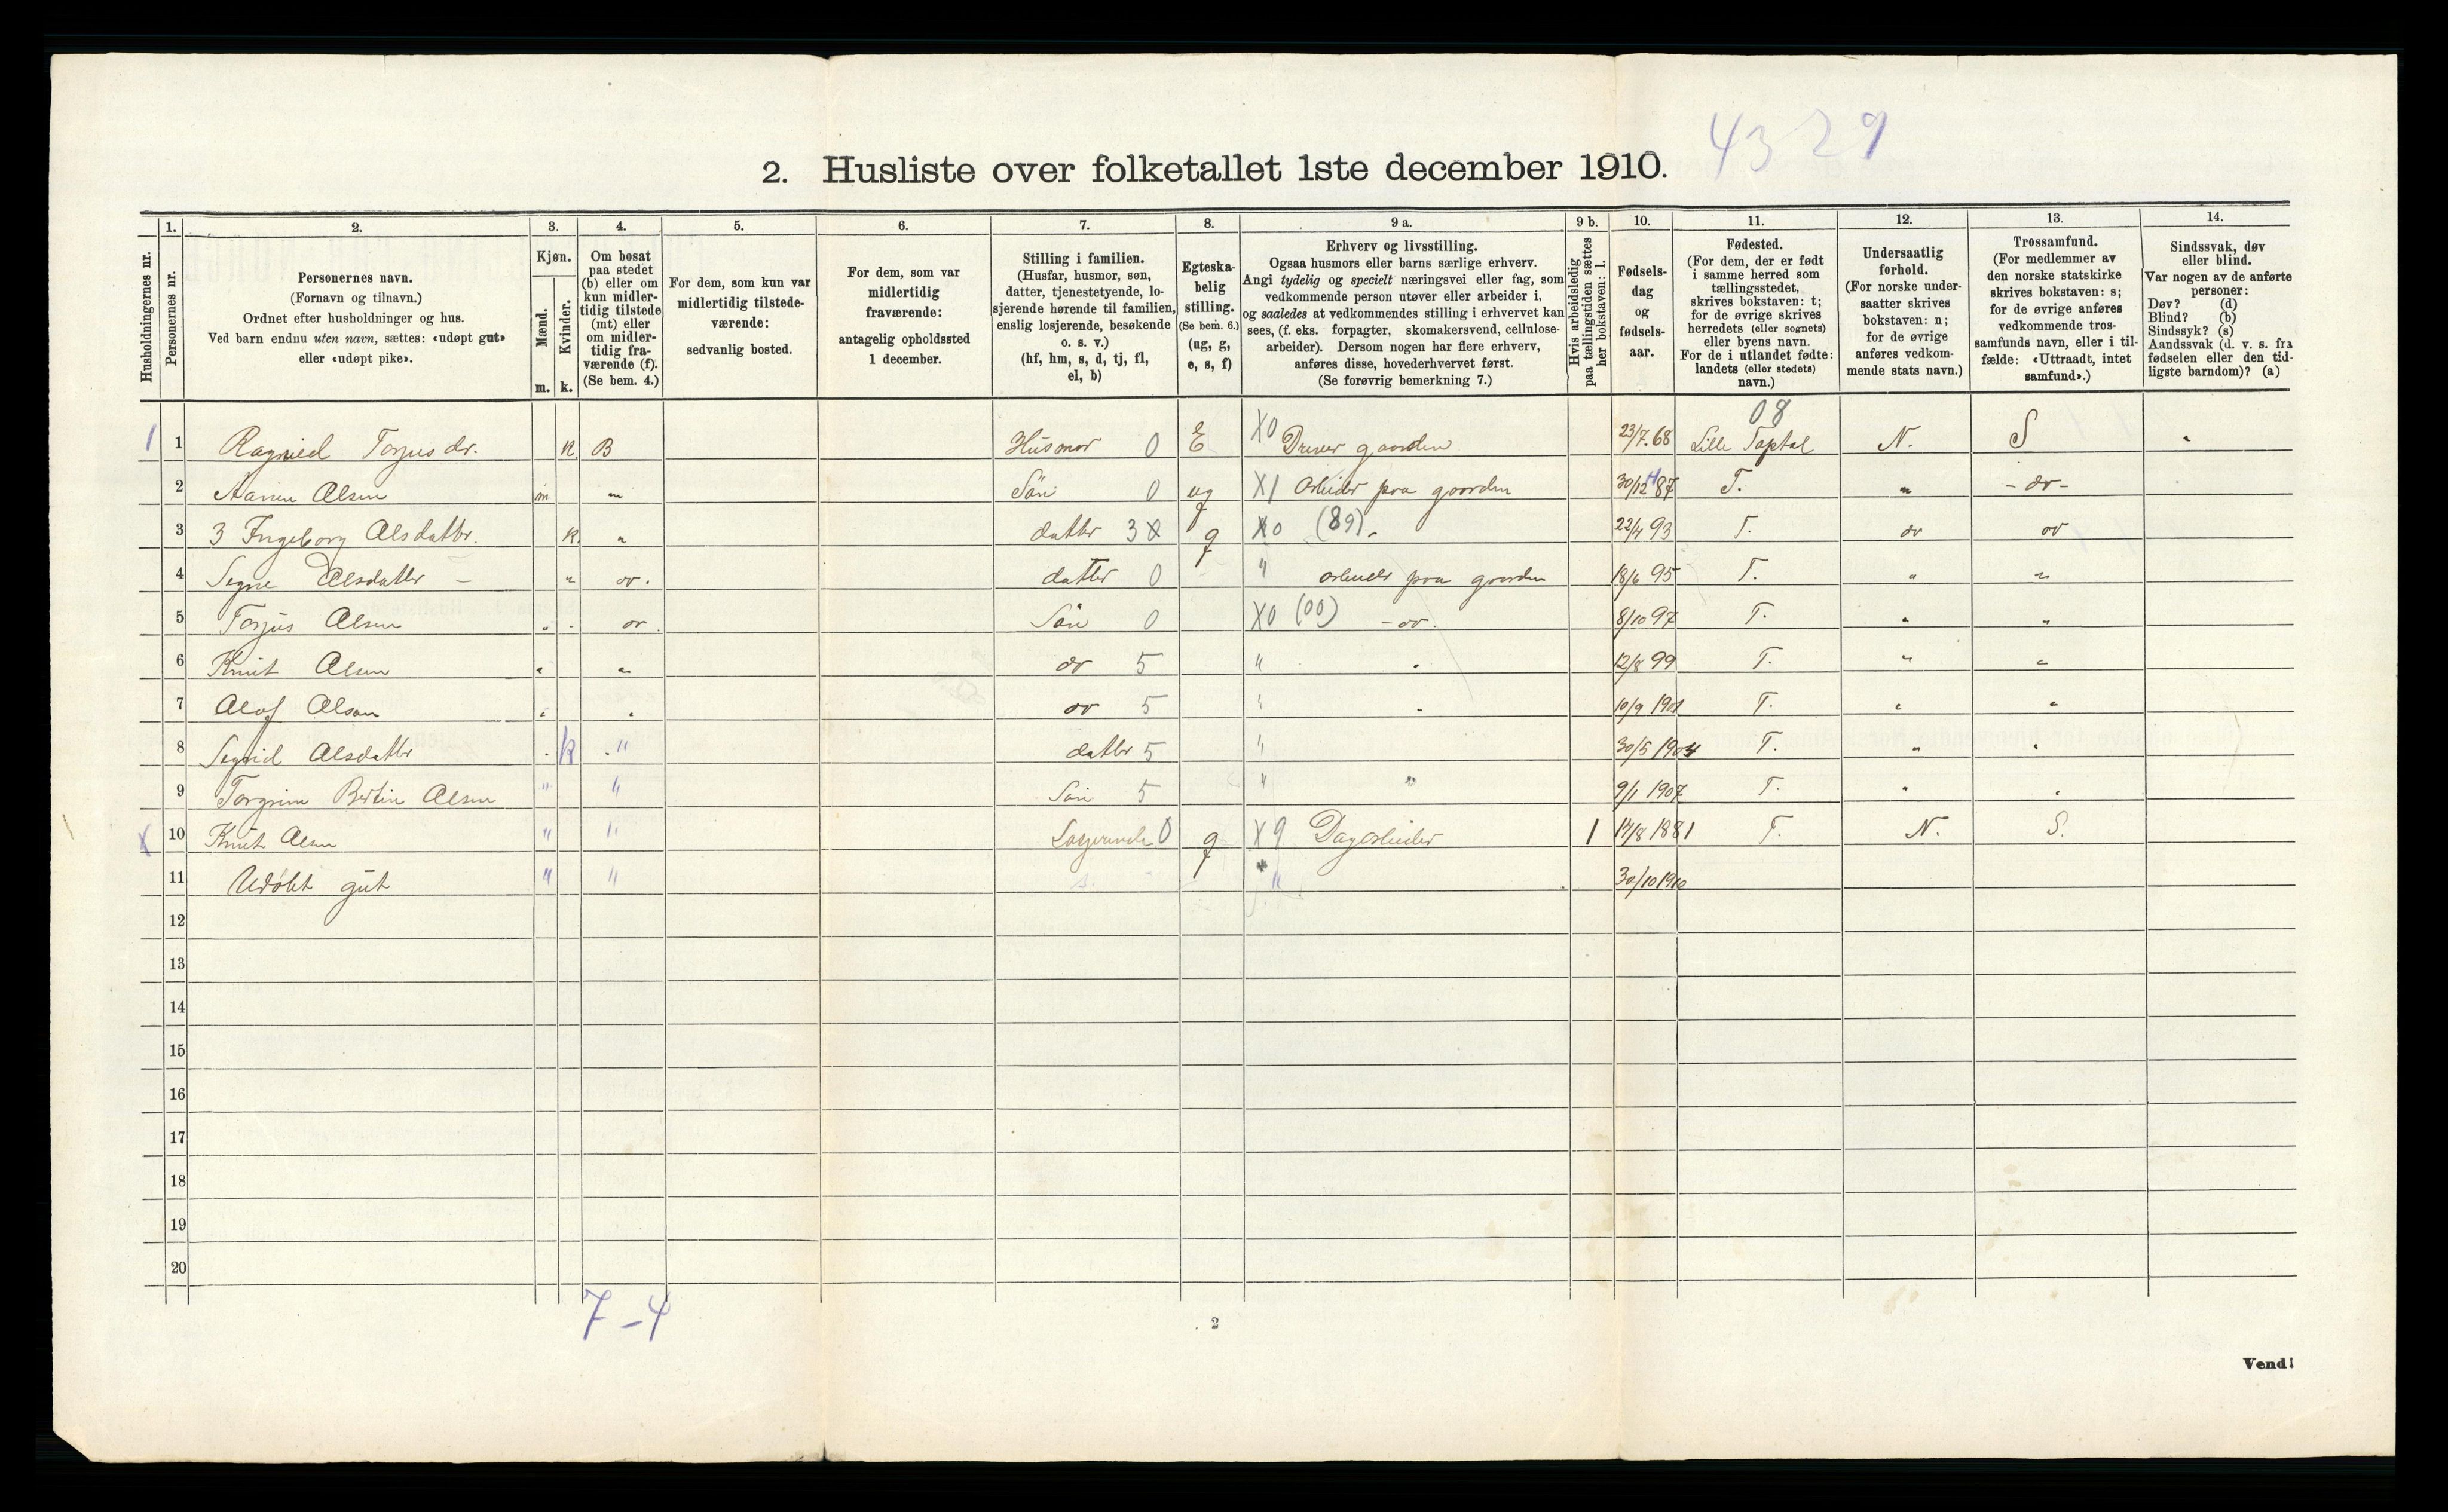 4329
2. Husliste over folketallet 1ste december 1910.
Husholdningernes nr.
1.
Personernes nr.
2.
Personernes navn.
(Fornavn og tilnavn.)
Ordnet efter husholdninger og hus.
Ved barn endnu uten navn, sættes: «udøpt gut»
eller «udøpt pike».
3.
Kjøn.
Mænd.
m.
Kvinder.
k.
4.
Om bosat
paa stedet
(b) eller om
kun midler-
tidig tilstede
(mt) eller
om midler-
tidig fra-
værende (f).
(Se bem. 4.)
5.
For dem, som kun var
midlertidig tilstede-
værende:
sedvanlig bosted.
6.
For dem, som var
midlertidig
fraværende:
antagelig opholdssted
1 december.
7.
Stilling i familien.
(Husfar, husmor, søn,
datter, tjenestetyende, lo-
sjerende hørende til familien,
enslig losjerende, besøkende
o. s. v.)
(hf, hm, s, d, tj, fl,
el, b)
8.
Egteska-
belig
stilling.
(Se bem. 6.)
(ug, g,
e, s, f)
9 a.
Erhverv og livsstilling.
Ogsaa husmors eller barns særlige erhverv.
Angi tydelig og specielt næringsvei eller fag, som
vedkommende person utøver eller arbeider i,
og saaledes at vedkommendes stilling i erhvervet kan
sees, (f. eks. forpagter, skomakersvend, cellulose-
arbeider). Dersom nogen har flere erhverv,
anføres disse, hovederhvervet først.
(Se forøvrig bemerkning 7.)
9 b.
Hvis arbeidsledig
paa tællingstiden sættes
her bokstaven: l.
10.
Fødsels-
dag
og
fødsels-
aar.
11.
Fødested.
(For dem, der er født
i samme herred som
tællingsstedet,
skrives bokstaven: t;
for de øvrige skrives
herredets (eller sognets)
eller byens navn.
For de i utlandet fødte:
landets (eller stedets)
navn.)
12.
Undersaatlig
forhold.
(For norske under-
saatter skrives
bokstaven: n;
for de øvrige
anføres vedkom-
mende stats navn.)
13.
Trossamfund.
(For medlemmer av
den norske statskirke
skrives bokstaven: s;
for de øvrige anføres
vedkommende tros-
samfunds navn, eller i til-
fælde: «Uttraadt, intet
samfund».)
14.
Sindssvak, døv
eller blind.
Var nogen av de anførte
personer:
Døv? (d)
Blind? (b)
Sindssyk? (s)
Aandssvak (d. v. s. fra
fødselen eller den tid-
ligste barndom)? (a)
08
1 1 Torjusdr. K B Husmor 0 E X0 Driver gaarden 23/7.68 Lille N. S
2 Olsen m " Sön 0 ug X1 Arbeider paa gaarden 87 T. " - do -
3 3 Ingeborg Olsdattr. K. " dattr 3 X g X0 (89) 22/4 93 T. do do
4 Olsdattr - " do. datter 0 " arbeider paa gaarden 18/6 95 T. " "
5 Torjus Olsen " do. Sön 0 X0 (00) - do. 8/10 97 T. " "
6 Knut Olsen " " do 5 " " 12/8 99 T. " "
7 Olaf Olsen " " do 5 " " 10/9 1901 T. " "
8 Olsdattr k " dattr 5 " T. " "
9 Torgrim Olsen " " Sön 5 " " 9/1 1907 T. " "
X 10 Knut Olsen " " Losjerende 0 g X9 Dagarbeider l 1881 T. N. S.
11 Udöbt gut " " " 30/10 1910
12
13
14
15
16
17
18
19
20
7-4
2
Vend!